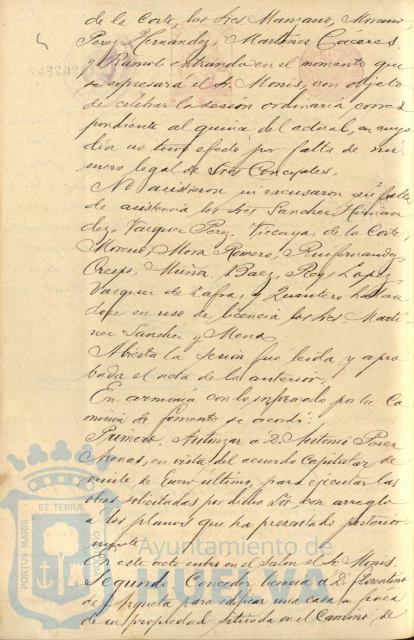 de la Corte, los Sres Manzano, Moreno
Perez Hernandez, Martinez Cáceres
y Ramos entrando en el momento que
se expresará el Sr Monis, con objeto
de celebrar la sesion ordinaria corres
pondiente al quince del actual, en cuyo
dia no tuvo efecto por falta de nú
mero legal de Sres Concejales.
No asistieron ni excusaron su falta
de asistencia los Sres Sanchez
dez, Vazquez Perez, Vizcaya, de la Corte,
Moreno, Mora Romero, Ruifernandez,
Crespo, Muñiz, Baez, Rey, Lopez,
Vazquez de Zafra, y Quintero
en uso de licencia los Sres Marti
nez Sanchez y Mena
Abierta la Sesion fue leida y apro
bada el acta de la anterior.
En armonia con lo informado por la Co
mision de fomento se acordó:
Primero. Autorizar á D. Antonio Perez
Arenas, en vista del acuerdo Capitular de
veinte de Enero último, para ejecutar las
obras solicitadas por dicho Sor, con arreglo
a los planos que ha presentado posterior
mente
En este acto entra en el Salon el Sr Monis
Segundo. Conceder licencia a D. Florentino
de Azqueta para edificar una casa en finca
de su propiedad situada en el Camino, de
PORTUS MARIS
ET TERRÆ
CUSTODIA
Ayuntamiento de
HUELVA